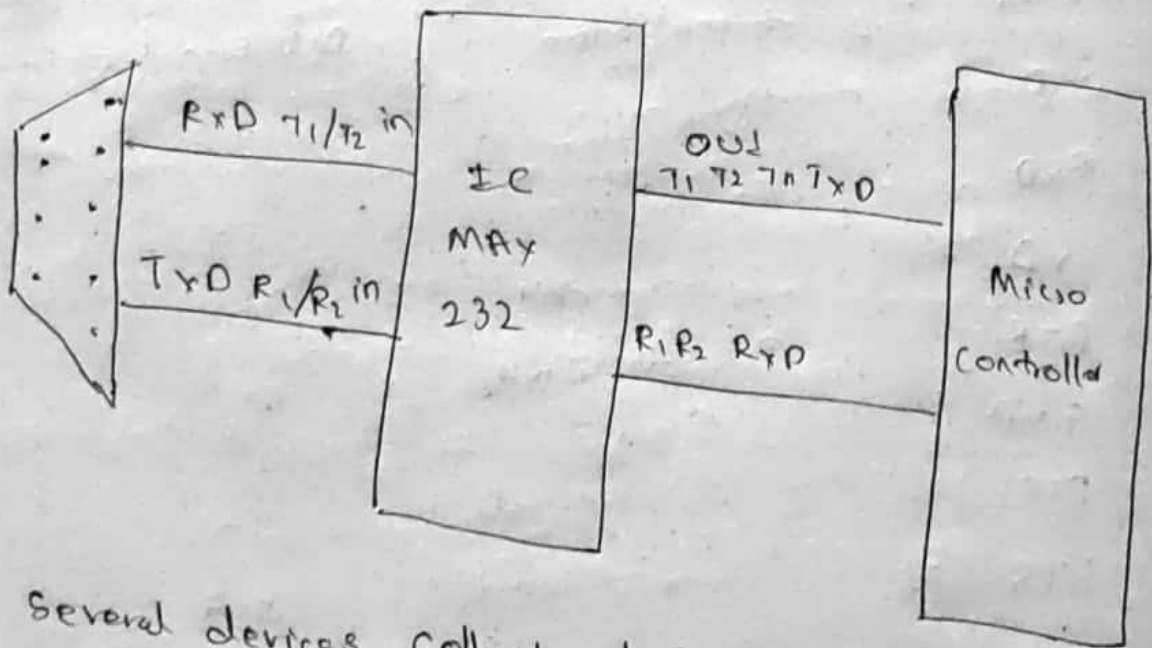 RxD T1/T2 in
TxD R1/R2 in
IC
MAX
232
OUT
T1 T2 In TxD
R1 R2 RxD
Micro
Controller
Several devices